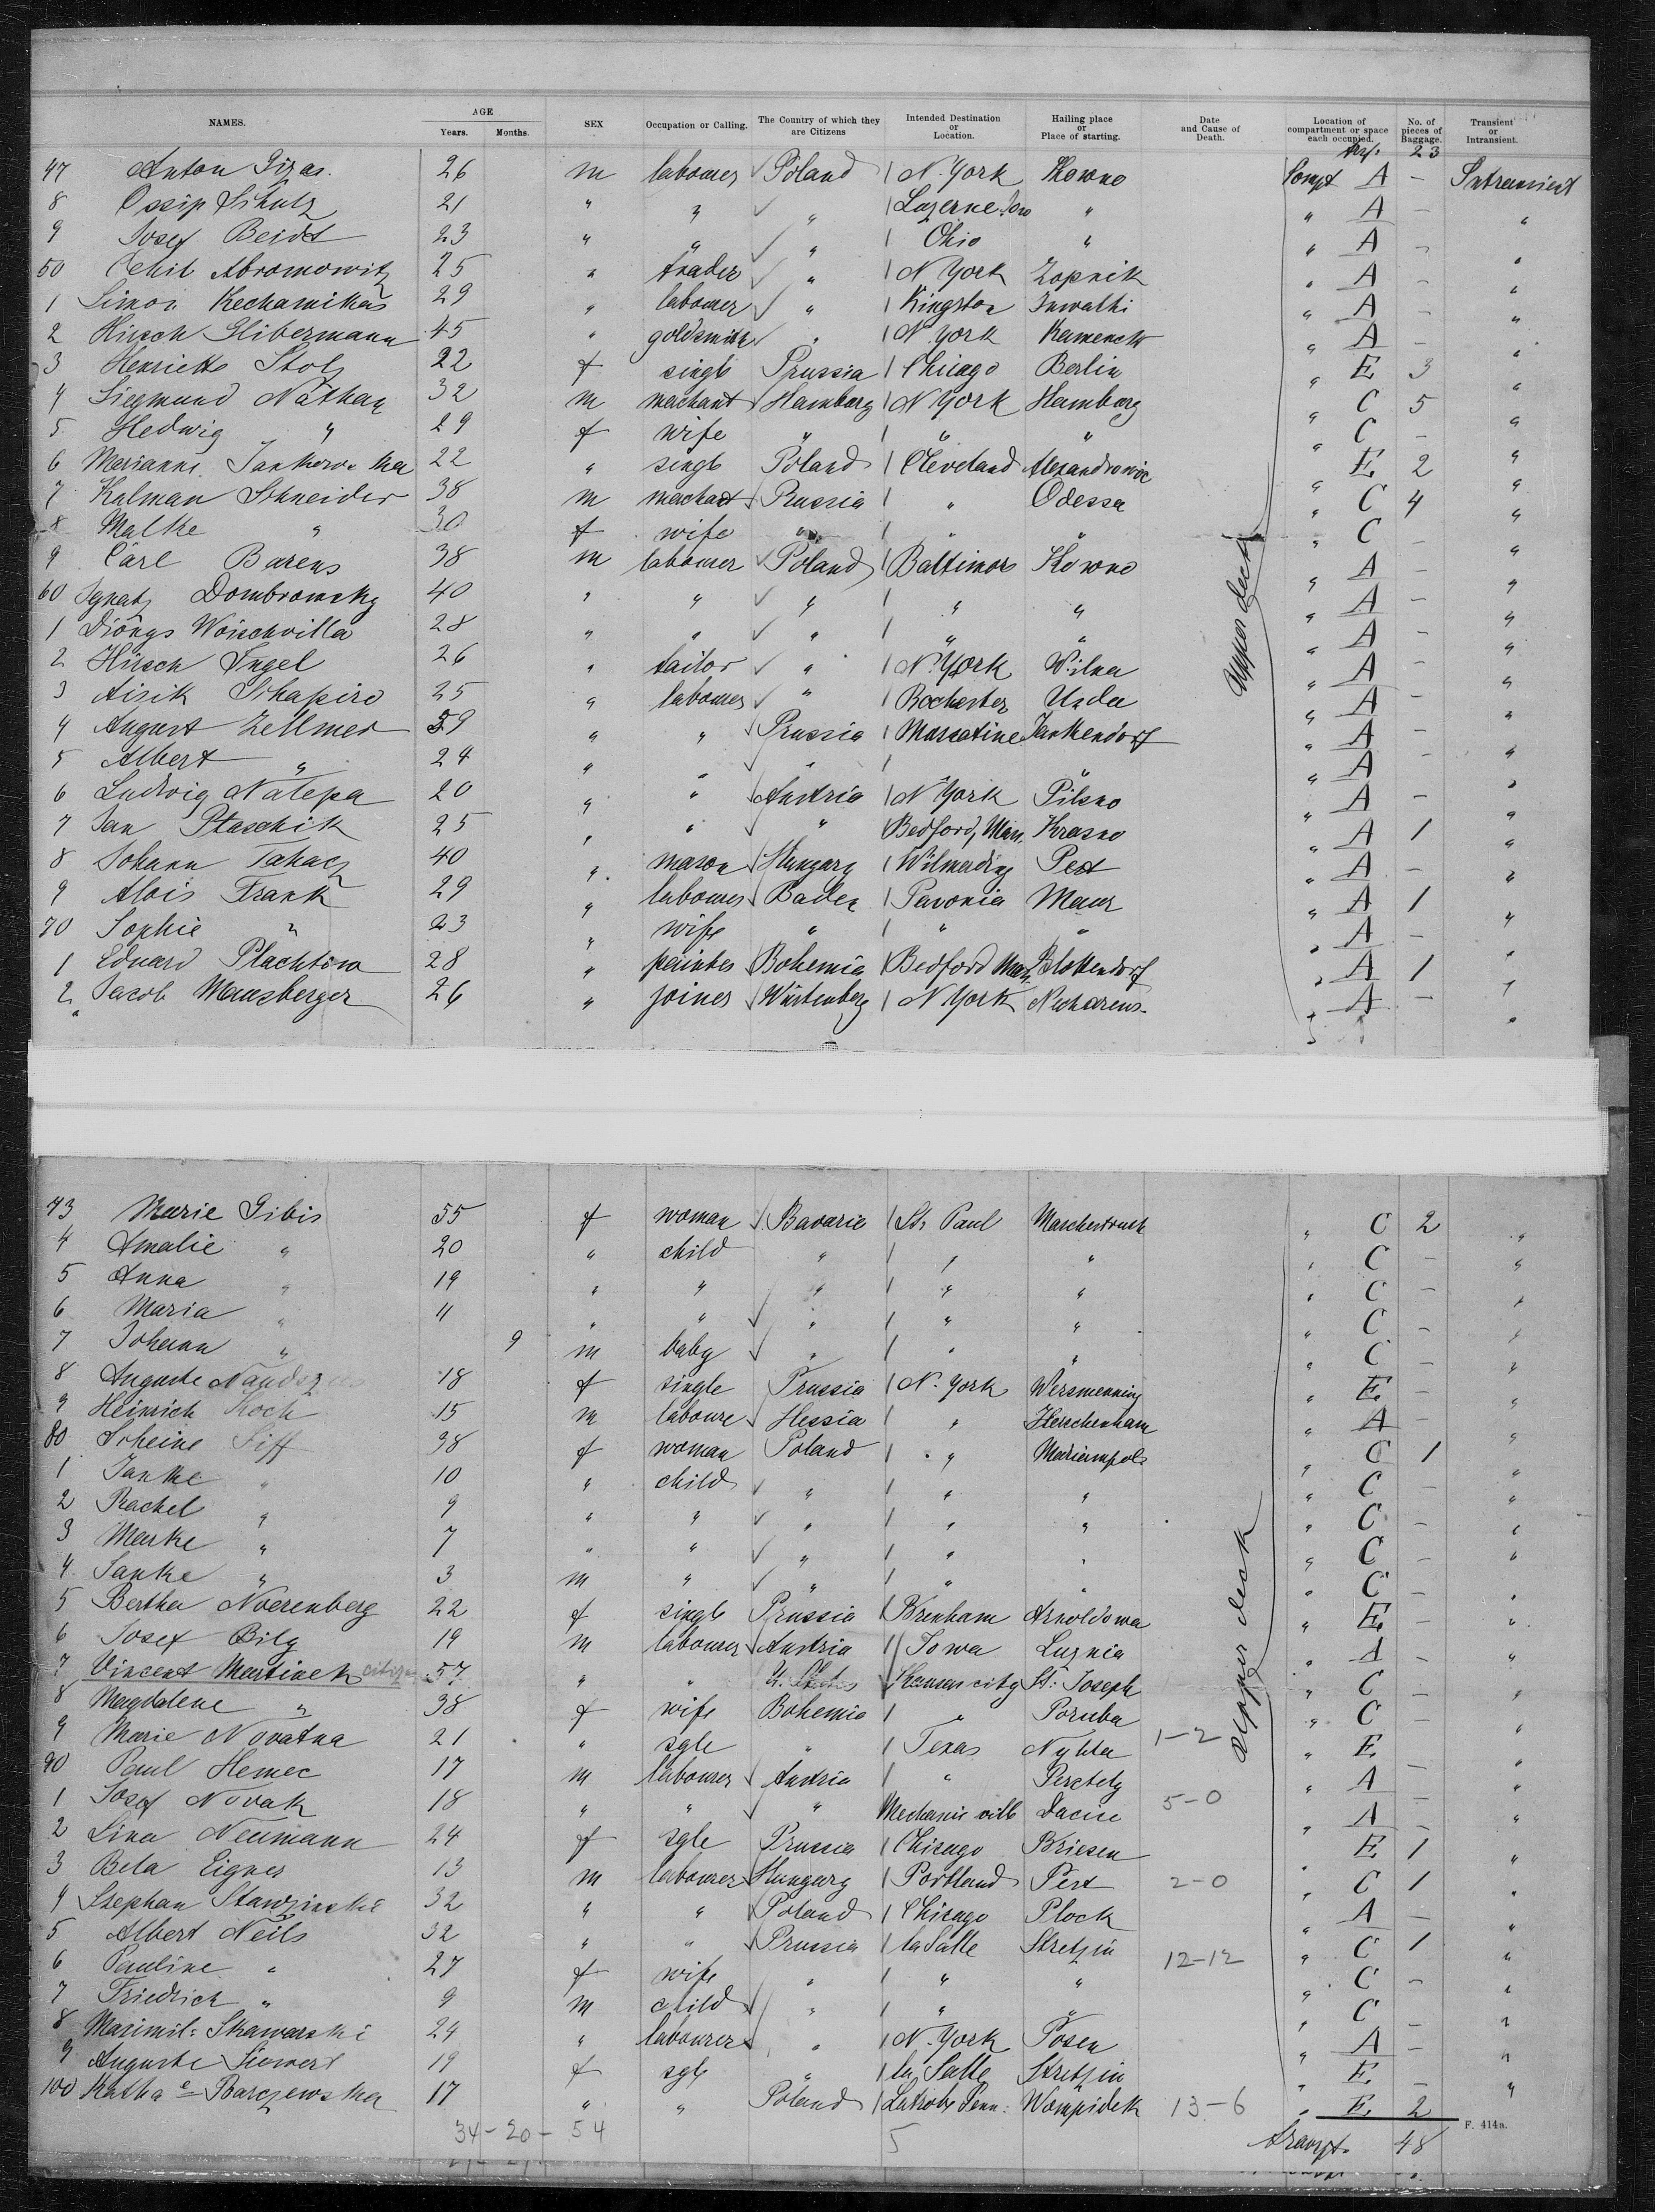 NAMES. AGE Years. Months. SEX Occupation or Calling. The Country of which they are Citizens Intended Destination or Location. Hailing place or Place of starting. Date and Cause of Death. Location of compartment or space each occupied. No. of pieces of Baggage. Transient or Intransient.
23
47 Anton Gizas. 26 m labourer Poland N. York Kowno Compt A - Intransient
8 Ossip Schulz 21 " " " Luzerne " " A - "
9 Josef Beidt 23 " " " Ohio " " A - "
50 Abromowitz 25 " trader " N York Zopnik " A - "
1 Simon Kechamikas 29 " labourer " Kingston " A - "
2 Hirsch Glibermann 45 " goldsmith " N York " A - "
3 Henriette Stolz 22 f single Prussia Chicago Berlin " E 3 "
4 Siegmund Nathan 32 m merchant Hamburg N York Hamburg " C 5 "
5 Hedwig " 29 f wife " " " " C - "
6 Marianne 22 " single Poland Cleveland " E 2 "
7 Kalman Schneider 38 m merchant Russia " Odessa " C 4 "
8 Malke " 30 f wife " " " " C - "
9 Carl Barens 38 m labourer Poland Baltimore Kowno " A - "
60 Ignatz Dombrowsky 40 " " " " " " A - "
1 Woischvilla 28 " " " " " " A - "
2 Hirsch Engel 26 " tailor " N. York Wilna " A - "
3 Aisik Schapiro 25 " labourer " Rochester Uzda " A - "
4 August Zellmer 59 " " Prussia Muscatine Jankendorf " A - "
5 Albert " 24 " " " " " " A - "
6 Ludwig Natepa 20 " " Austria N York Pilsno " A - "
7 Jan Ptaschik 25 " " " Bedford, Mass. Krasno " A 1 "
8 Johann Takacz 40 " mason Hungary Wilmerding Pest " A - "
9 Alois Frank 29 " labourer Baden Pavonia Maur " A 1 "
70 Sophie " 23 " wife " " " " A - "
1 Eduard Plachtowa 28 " painter Bohemia Bedford Mass. " A 1 "
2 Jacob Mausberger 26 " joiner Würtenberg N York " A - "
Upper deck
73 Marie Gibis 55 f woman Bavaria St. Paul " C 2 "
4 Amalie " 20 " child " " " " C - "
5 Anna " 19 " " " " " " C - "
6 Maria " 11 " " " " " " C - "
7 Johann " 9 m baby " " " " C - "
8 Auguste 18 f single Prussia N. York Wersmenning " E - "
9 Heinrich Koch 15 m laboure Hessia " Herchenham " A - "
80 Scheine Siff 38 f woman Poland " Mariampol " C 1 "
1 Janke " 10 " child " " " " C - "
2 Rachel " 9 " " " " " " C - "
3 Marke " 7 " " " " " " C - "
4 Janke " 3 m " " " " " C - "
5 Bertha Noerenberg 22 f single Prussia Brenham Arnoldowa " E - "
6 Josef Bily 19 m labourer Austria Iowa Luznia " A - "
7 Vincent Martinek citizen 57 " " U. States Kansas city St. Joseph " C - "
8 Magdalene " 38 f wife Bohemia " Poruba " C - "
9 Marie Novatna 21 " sgle " Texas Nykta 1-2 " E - "
90 Paul Hemec 17 m labourer Austria " " A - "
1 Josef Novak 18 " " " Mechanicville Dacice 5-0 " A - "
2 Lina Neumann 24 f sgle Prussia Chicago Briesen " E 1 "
3 Bela Eigner 13 m labourer Hungary Portland Pest 2-0 " C 1 "
4 Stephan Stawzinski 32 " " Poland Chicago Plock " A - "
5 Albert Neils 32 " " Prussia la Salle Stretzin 12-12 " C 1 "
6 Pauline " 27 f wife " " " " C - "
7 Friedrich " 9 m child " " " " C - "
8 Maximil: Skawarski 24 " labourer " N. York Posen " A - "
9 Auguste Siewert 19 f sgle " la Salle Stretzin " E - "
100 Kathae Barczewska 17 " " Poland Latrobe Penn: Wompidek 13-6 " E 2 "
Upper deck
34-20-54 5 Transpt. 48
F. 414a.